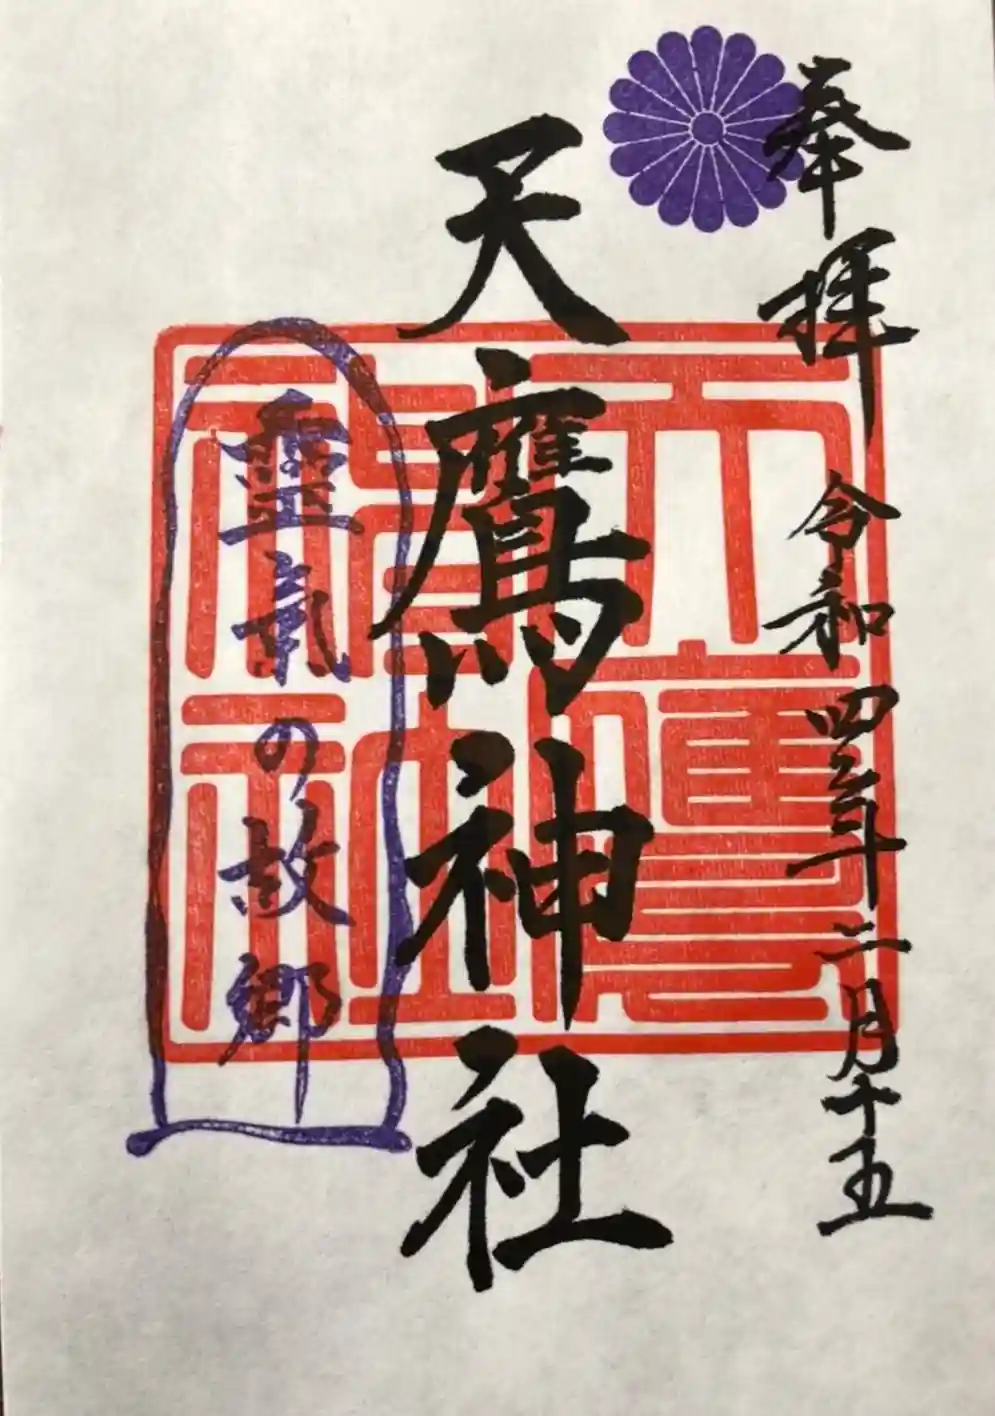 奉拝
令和四年二月十五
天鷹神社
霊気の故郷
天鷹
神社